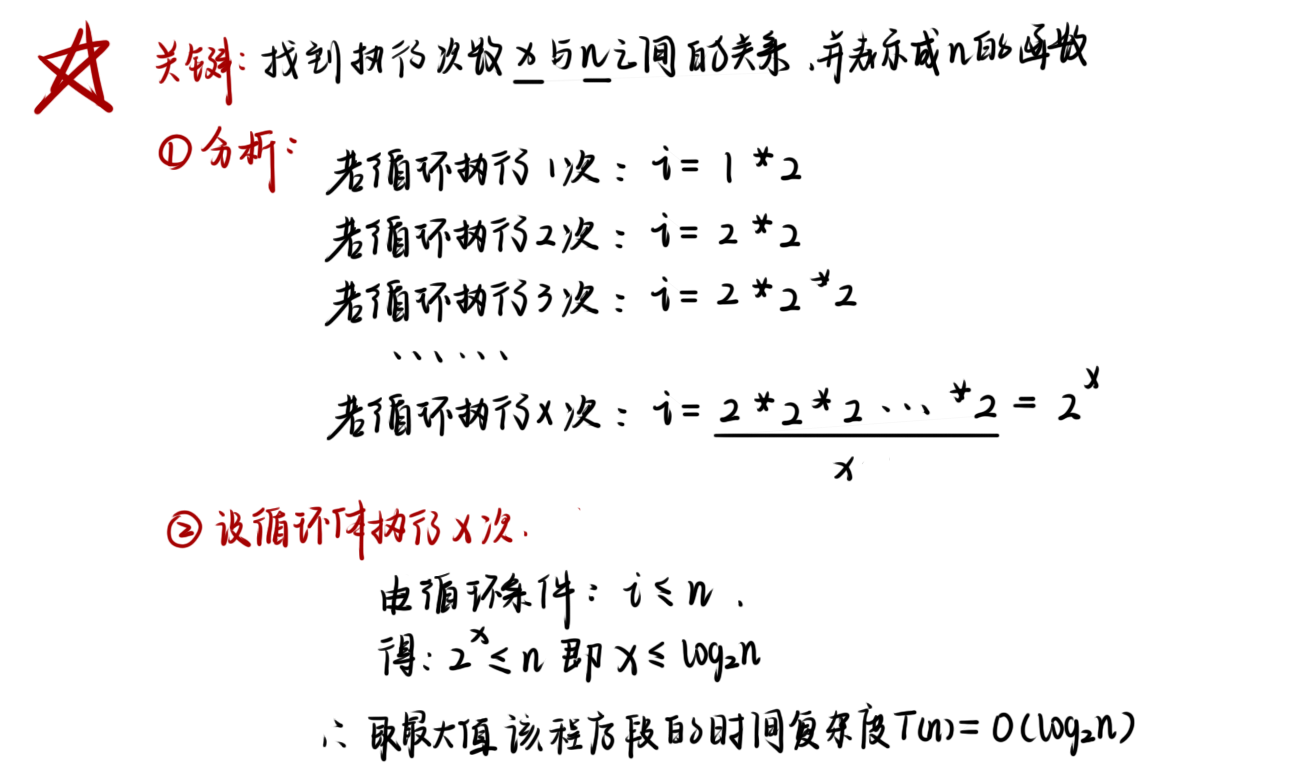 关键：找到执行次数x与n之间的关系，并表示成n的函数
①分析：
若循环执行1次：i = 1 * 2
若循环执行2次：i = 2 * 2
若循环执行3次：i = 2 * 2 * 2
……
若循环执行x次：i = 2 * 2 * 2 ... * 2 = 2^x
x
②设循环体执行x次.
由循环条件：i ≤ n .
得：2^x ≤ n 即 x ≤ log₂n
∴ 取最大值 该程序段的时间复杂度T(n) = O(log₂n)